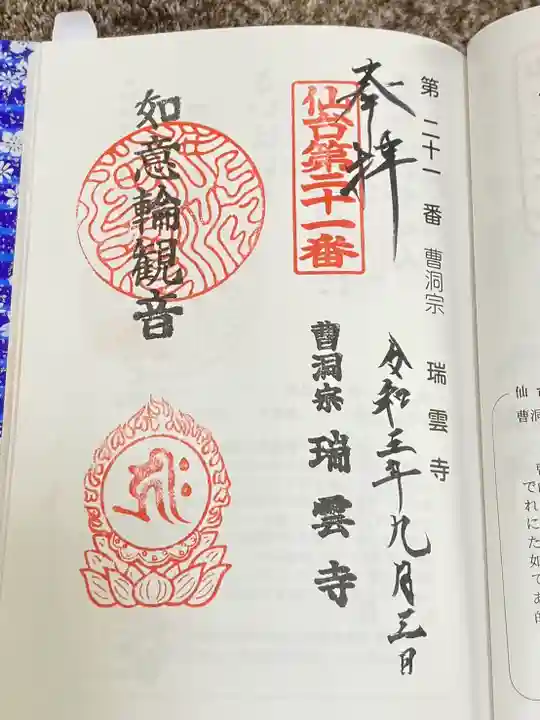 第二十一番 曹洞宗 瑞雲寺
奉拝
令和三年九月三日
仙台第二十一番
曹洞宗 瑞雲寺
如意輪観音
仙
曹洞
で
れ
に
た
如
て
あ
的